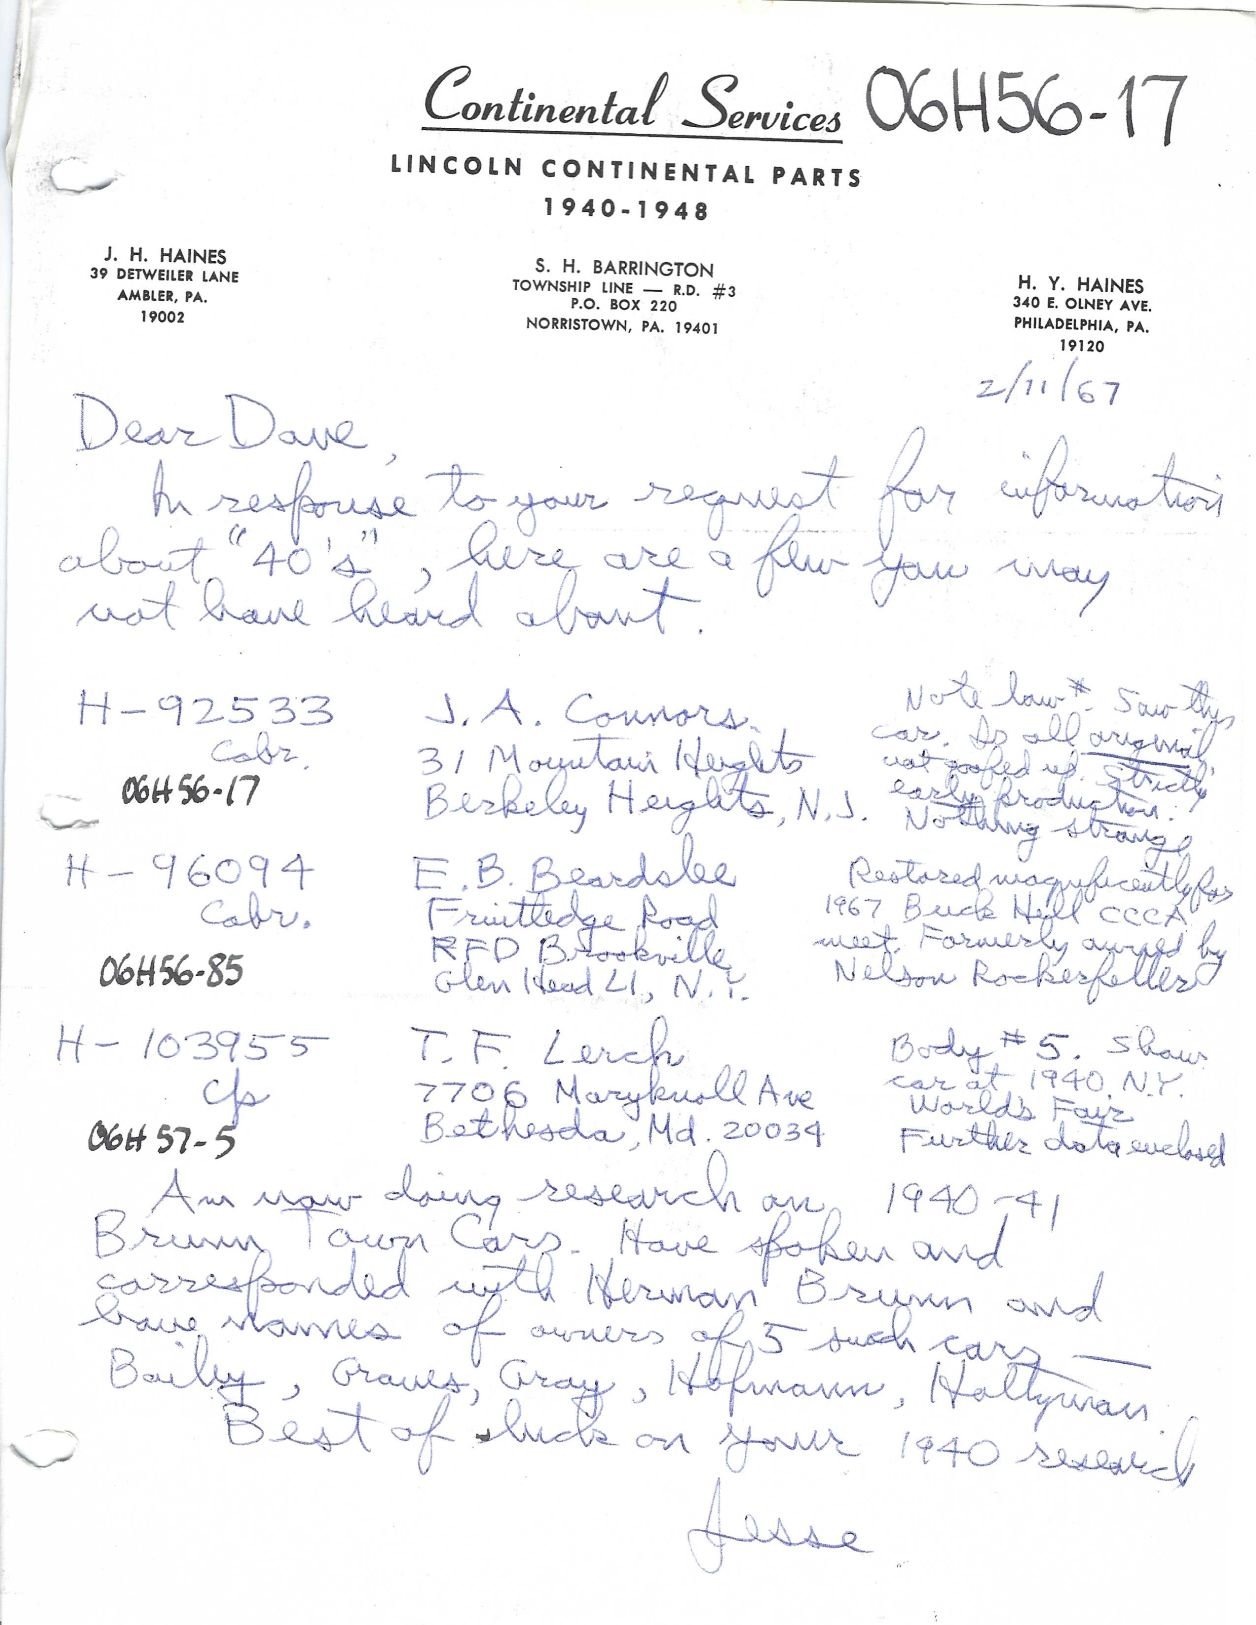 Continental Services 06H56-17
LINCOLN CONTINENTAL PARTS
1940-1948
J. H. HAINES
39 DETWEILER LANE
AMBLER, PA.
19002
S. H. BARRINGTON
TOWNSHIP LINE — R.D. #3
P.O. BOX 220
NORRISTOWN, PA. 19401
H. Y. HAINES
340 E. OLNEY AVE.
PHILADELPHIA, PA.
19120
2/11/67
Dear Dave,
In response to your request for information
about "40's", here are a few you may
not have heard about.
H-92533
Cabr.
06H56-17
J. A. Connors
31 Mountain Heights
Berkeley Heights, N.J.
Note low #. Saw this
car. Is all original,
not goofed up. Strictly
early production.
Nothing strange
H-96094
Cabr.
06H56-85
E. B. Beardslee
Fruitledge Road
RFD Brookville
Glen Head LI, N.Y.
Restored magnificently for
1967 Buck Hill CCCA
meet. Formerly owned by
Nelson Rockerfeller
H-103955
Cp
06H57-5
T. F. Lerch
7706 Maryknoll Ave
Bethesda, Md. 20034
Body #5. Show
car at 1940 N.Y.
World's Fair
Further data enclosed
Am now doing research on 1940-41
Brunn Town Cars. Have spoken and
corresponded with Herman Brunn and
have names of owners of 5 such cars —
Bailey, Graves, Gray, Hofmann, Holtzman
Best of luck on your 1940 research
Jesse